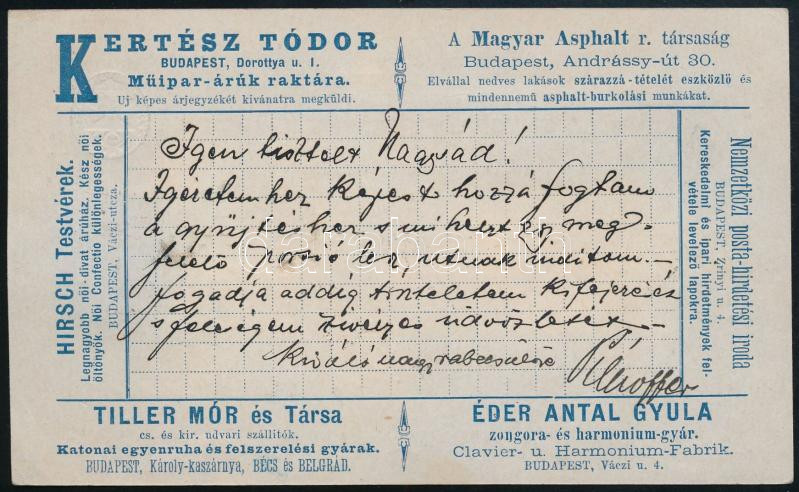 KERTÉSZ TÓDOR
BUDAPEST, Dorottya u. 1.
Műipar-árúk raktára.
Uj képes árjegyzékét kivánatra megküldi.
A Magyar Asphalt r. társaság
Budapest, Andrássy-út 30.
Elvállal nedves lakások szárazzá-tételét eszközlő és
mindennemű asphalt-burkolási munkákat.
HIRSCH Testvérek.
Legnagyobb női-divat árúház. Kész női
öltönyök. Női Confectio különlegességek.
BUDAPEST, Váczi-utcza.
Igen tisztelt Nagysád!
Igéretemhez képest hozzá fogtam
a gyűjtéshez s mihelyt egy meg-
felelő porsió lesz, utnak inditom.—
fogadja addig tiszteletem kifejezését
s feleségem szivélyes üdvözletét —
Kiváló nagyrabecsüléssel
darabanth
Nemzetközi posta-hirdetési iroda
BUDAPEST, Zrinyi u. 4.
Kereskedelmi és ipari hirdetmények fel-
vétele levelező lapokra.
TILLER MÓR és Társa
cs. és kir. udvari szállítók.
Katonai egyenruha és felszerelési gyárak.
BUDAPEST, Károly-kaszárnya, BÉCS és BELGRÁD.
ÉDER ANTAL GYULA
zongora- és harmonium-gyár.
Clavier- u. Harmonium-Fabrik.
BUDAPEST, Váczi u. 4.